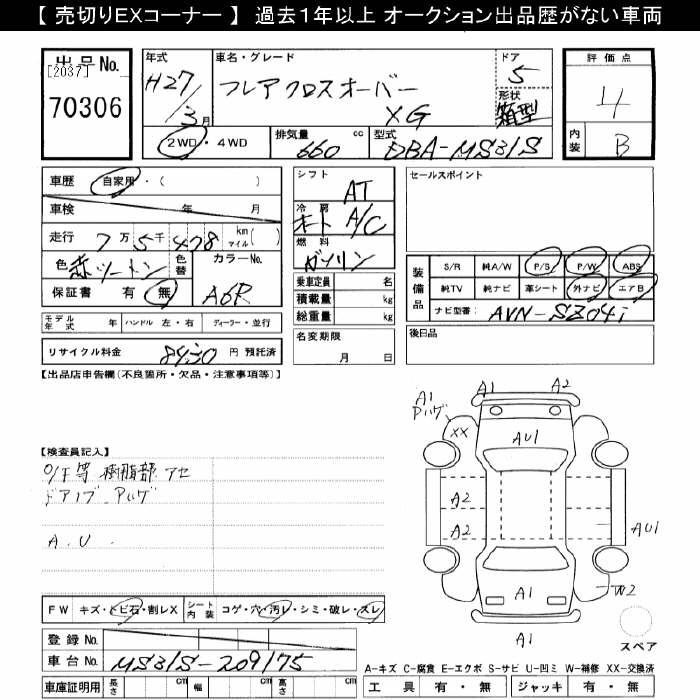 【 売切りEXコーナー 】 過去1年以上 オークション出品歴がない車両
出品No.
[2037]
70306
年式
H27/3月
車名・グレード
フレアクロスオーバー
XG
ドア
5
形状
箱型
2WD・4WD
排気量 660 cc
型式 DBA-MS31S
評価点
4
内装 B
車歴 自家用・( )
車検 年 月
走行 7万5千478 km マイル( )
色 赤ツートン
色替
カラーNo.
A6R
保証書 有 無
モデル年式 年 ハンドル 左・右 ディーラー・並行
リサイクル料金 8430 円 預託済
シフト
AT
冷房
オート A/C
燃料
ガソリン
乗車定員 名
積載量 kg
総重量 kg
名変期限
月 日
セールスポイント
装備品
S/R 純A/W P/S P/W ABS
純TV 純ナビ 革シート 外ナビ エアB
ナビ型番: AVN-SZ04i
後日品
【出品店申告欄(不良箇所・欠品・注意事項等)】
【検査員記入】
O/F等 樹脂部 アセ
ドアノブ Pハゲ
A . U .
A1
A2
A1
Pハゲ
XX
AU1
A2
A2
AU1
A1
W2
A1
スペア
FW キズ・トビ石・割レX
シート内装 コゲ・穴・汚レ・シミ・破レ・スレ
登録No.
車台No. MS31S-209175
車庫証明用 長さ cm 幅 cm 高さ cm
A-キズ C-腐食 E-エクボ S-サビ U-凹ミ W-補修 XX-交換済
工具 有・無 ジャッキ 有・無